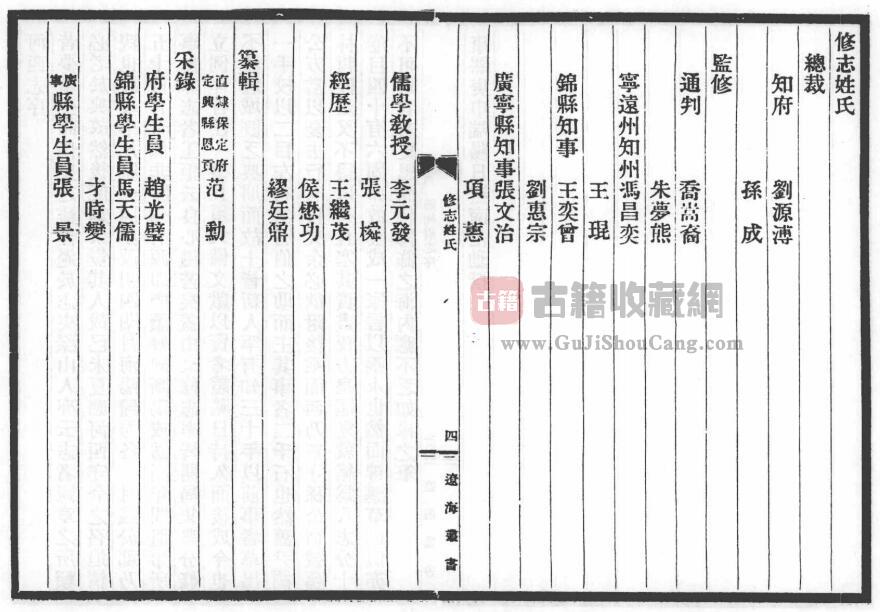 修志姓氏
總裁
知府　劉源溥
孫　成
監修
通判　喬嵩裔
朱夢熊
寧遠州知州馮昌奕
王　琨
錦縣知事　王奕曾
劉惠宗
廣寧縣知事張文治
項　蕙
修志姓氏
四
遼海叢書
儒學教授　李元發
張　㯋
經歷　王繼茂
侯懋功
繆廷鼐
纂輯
直隸保定府定興縣恩貢　范　勳
采錄
府學生員　趙光璧
錦縣學生員馬天儒
才時變
廣寧縣學生員張　景
古籍
古籍收藏網
www.GuJiShouCang.com